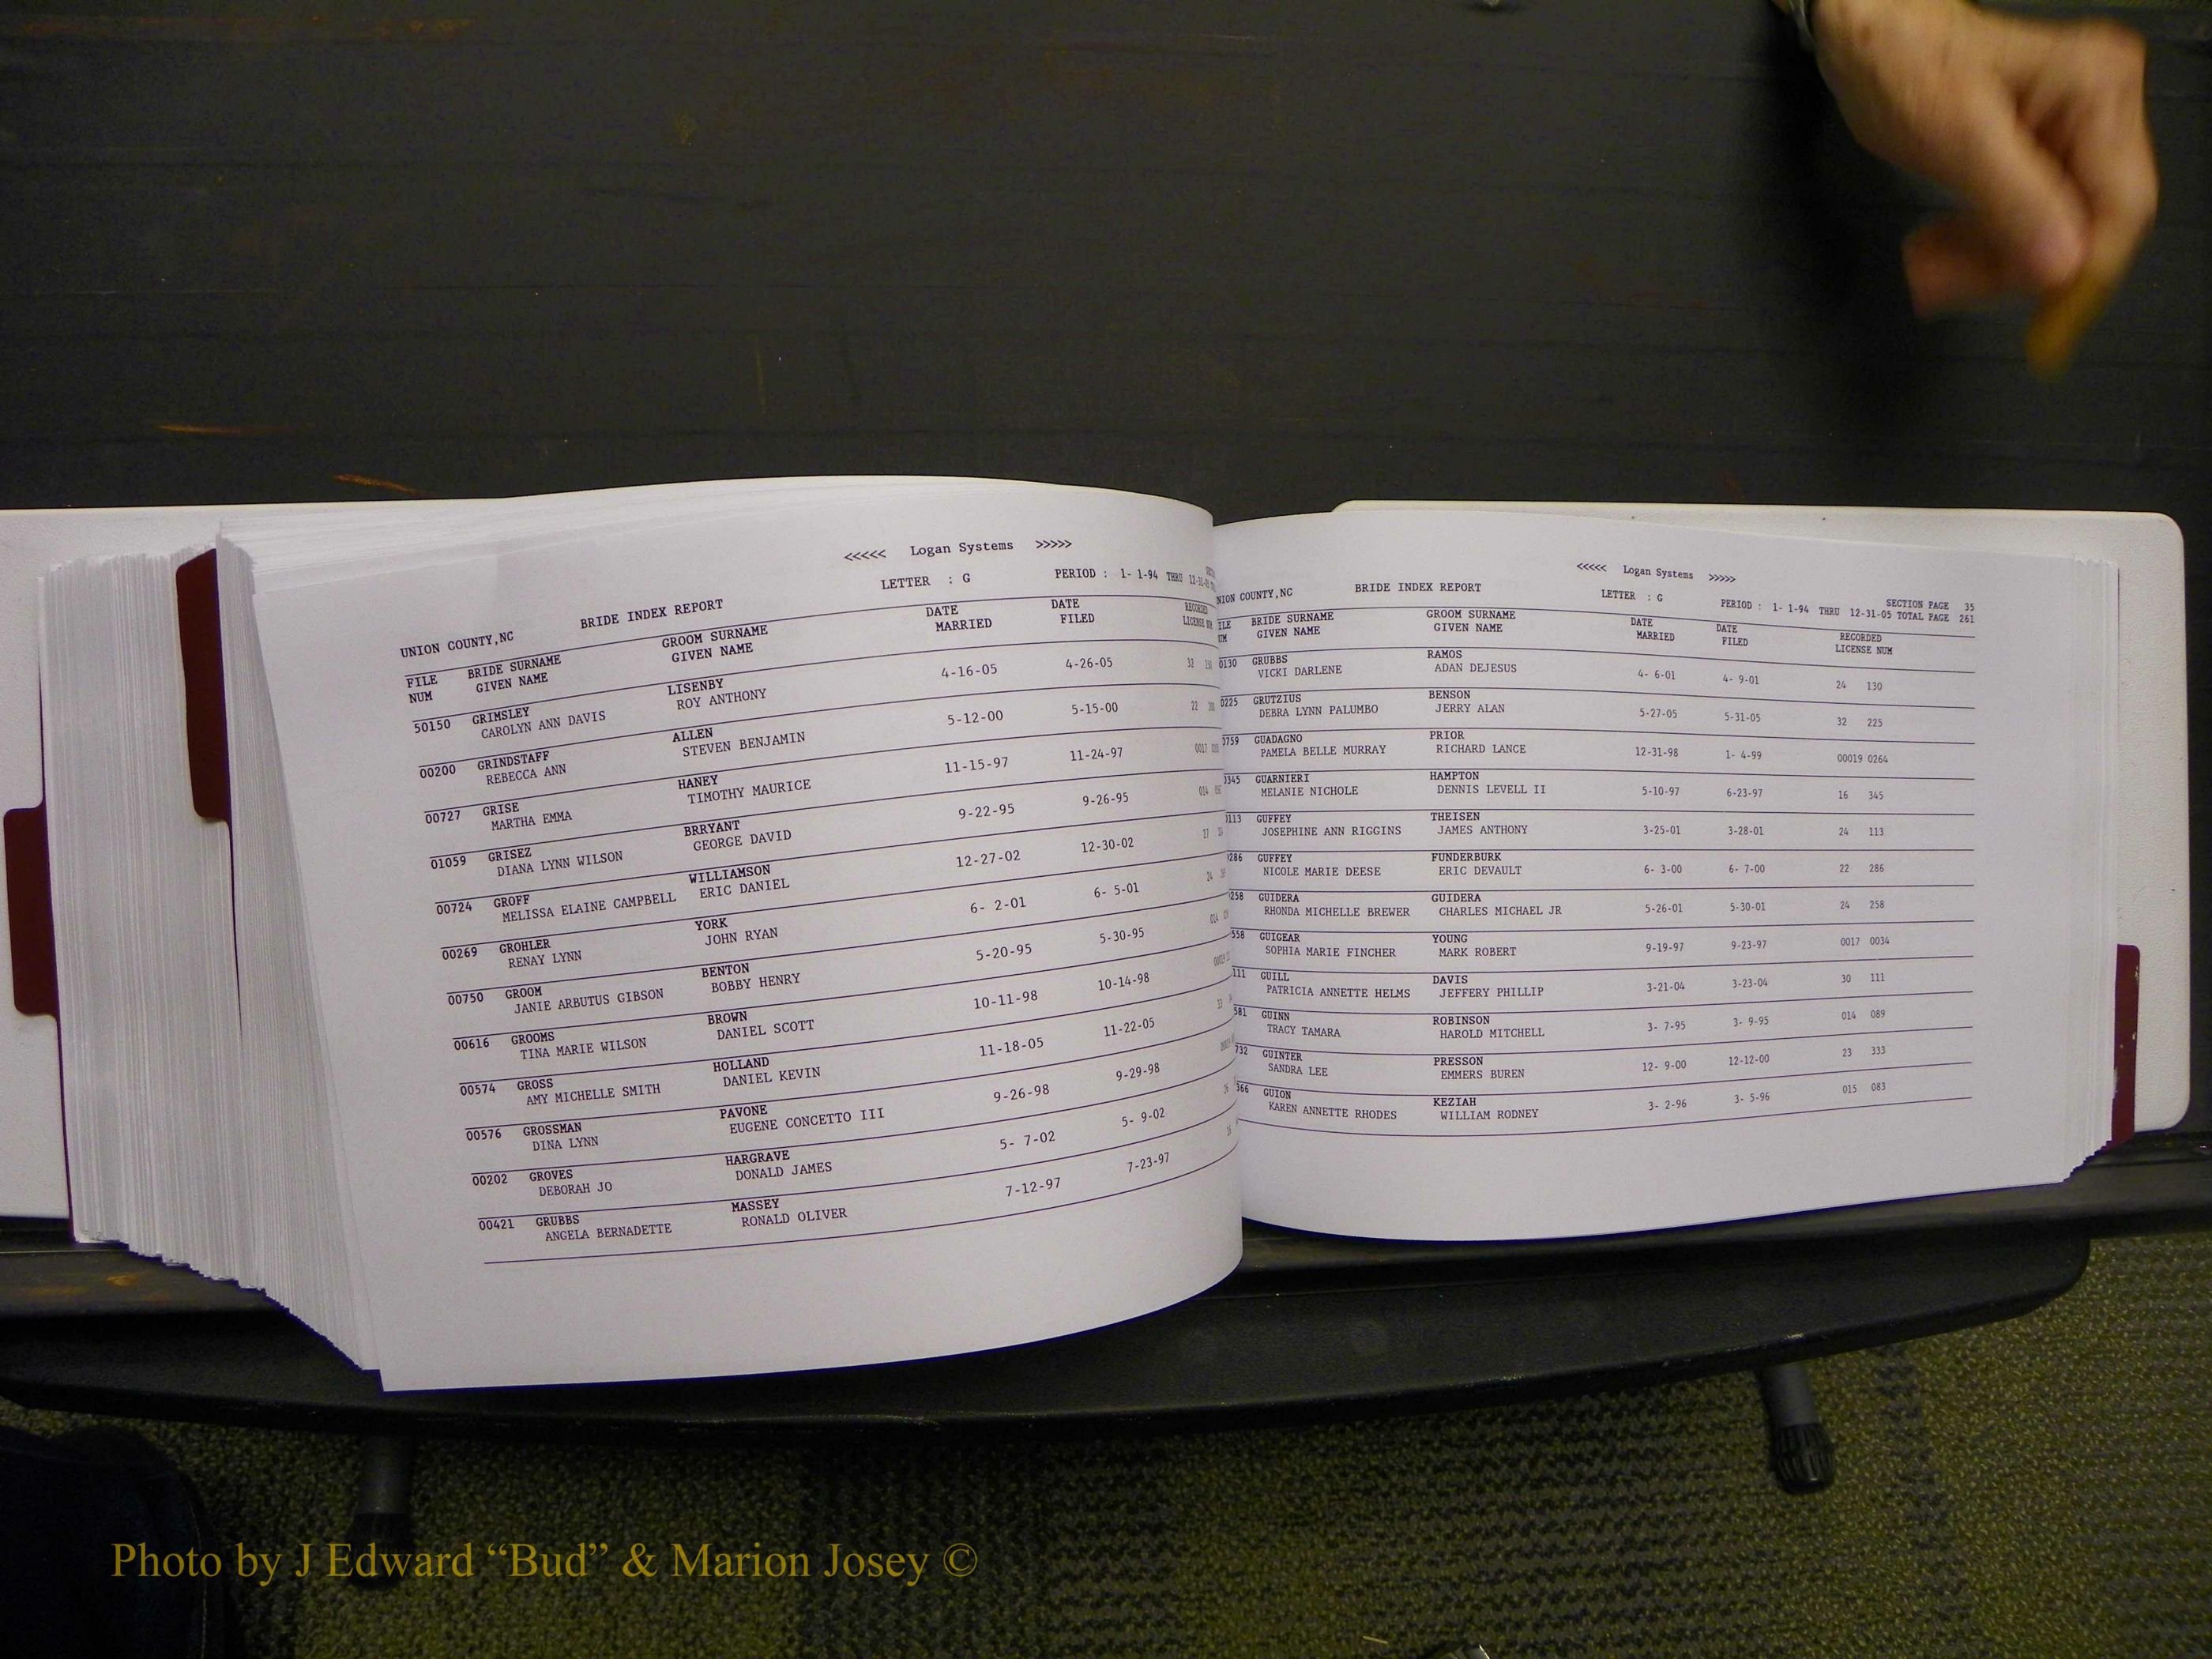 <<<<< Logan Systems >>>>>
LETTER : G
PERIOD : 1- 1-94 THRU
UNION COUNTY,NC BRIDE INDEX REPORT
FILE BRIDE SURNAME GROOM SURNAME DATE DATE RECORDED
NUM GIVEN NAME GIVEN NAME MARRIED FILED LICENSE
50150 GRIMSLEY LISENBY 4-16-05 4-26-05 32
CAROLYN ANN DAVIS ROY ANTHONY
00200 GRINDSTAFF ALLEN 5-12-00 5-15-00 22
REBECCA ANN STEVEN BENJAMIN
00727 GRISE HANEY 11-15-97 11-24-97 0017
MARTHA EMMA TIMOTHY MAURICE
01059 GRISEZ BRRYANT 9-22-95 9-26-95 014
DIANA LYNN WILSON GEORGE DAVID
00724 GROFF WILLIAMSON 12-27-02 12-30-02
MELISSA ELAINE CAMPBELL ERIC DANIEL
00269 GROHLER YORK 6- 2-01 6- 5-01 24
RENAY LYNN JOHN RYAN
00750 GROOM BENTON 5-20-95 5-30-95 014
JANIE ARBUTUS GIBSON BOBBY HENRY
00616 GROOMS BROWN 10-11-98 10-14-98
TINA MARIE WILSON DANIEL SCOTT
00574 GROSS HOLLAND 11-18-05 11-22-05
AMY MICHELLE SMITH DANIEL KEVIN
00576 GROSSMAN PAVONE 9-26-98 9-29-98
DINA LYNN EUGENE CONCETTO III
00202 GROVES HARGRAVE 5- 7-02 5- 9-02
DEBORAH JO DONALD JAMES
00421 GRUBBS MASSEY 7-12-97 7-23-97
ANGELA BERNADETTE RONALD OLIVER
<<<<< Logan Systems >>>>>
NION COUNTY,NC BRIDE INDEX REPORT LETTER : G SECTION PAGE 35
PERIOD : 1- 1-94 THRU 12-31-05 TOTAL PAGE 261
ILE BRIDE SURNAME GROOM SURNAME DATE DATE RECORDED
UM GIVEN NAME GIVEN NAME MARRIED FILED LICENSE NUM
0130 GRUBBS RAMOS 4- 6-01 4- 9-01 24 130
VICKI DARLENE ADAN DEJESUS
0225 GRUTZIUS BENSON 5-27-05 5-31-05 32 225
DEBRA LYNN PALUMBO JERRY ALAN
0759 GUADAGNO PRIOR 12-31-98 1- 4-99 00019 0264
PAMELA BELLE MURRAY RICHARD LANCE
0345 GUARNIERI HAMPTON 5-10-97 6-23-97 16 345
MELANIE NICHOLE DENNIS LEVELL II
0113 GUFFEY THEISEN 3-25-01 3-28-01 24 113
JOSEPHINE ANN RIGGINS JAMES ANTHONY
286 GUFFEY FUNDERBURK 6- 3-00 6- 7-00 22 286
NICOLE MARIE DEESE ERIC DEVAULT
258 GUIDERA GUIDERA 5-26-01 5-30-01 24 258
RHONDA MICHELLE BREWER CHARLES MICHAEL JR
558 GUIGEAR YOUNG 9-19-97 9-23-97 0017 0034
SOPHIA MARIE FINCHER MARK ROBERT
111 GUILL DAVIS 3-21-04 3-23-04 30 111
PATRICIA ANNETTE HELMS JEFFERY PHILLIP
581 GUINN ROBINSON 3- 7-95 3- 9-95 014 089
TRACY TAMARA HAROLD MITCHELL
732 GUINTER PRESSON 12- 9-00 12-12-00 23 333
SANDRA LEE EMMERS BUREN
366 GUION KEZIAH 3- 2-96 3- 5-96 015 083
KAREN ANNETTE RHODES WILLIAM RODNEY
Photo by J Edward “Bud” & Marion Josey ©